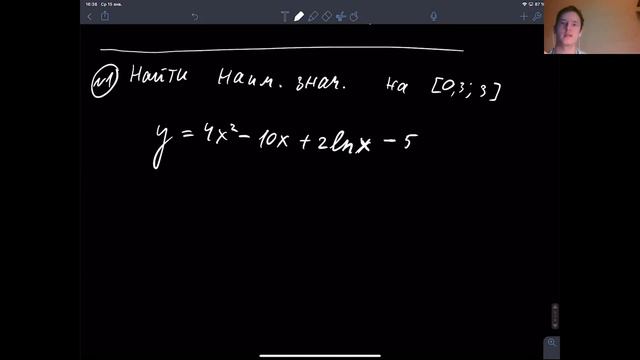 16:38 Ср 15 янв.
87 %
№1 Найти наим. знач. на [0,3; 3]
y = 4x² - 10x + 2lnx - 5